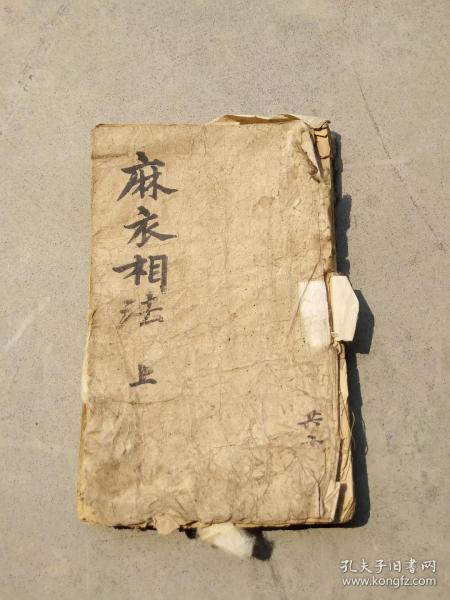 麻衣相法 上
孔夫子旧书网
www.kongfz.com